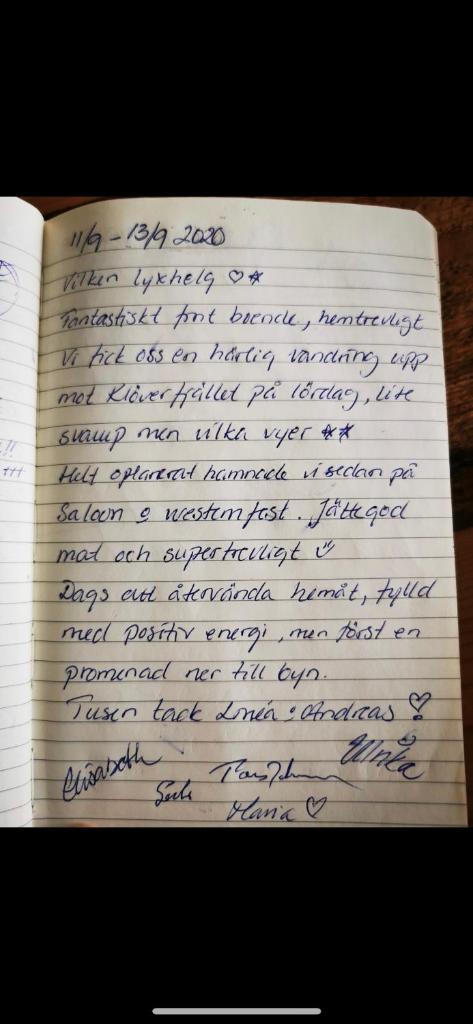 11/9 - 13/9 2020
Vilken lyxhelg ♡★
Fantastiskt fint boende, hemtrevligt
Vi fick oss en härlig vandring upp
mot Klöverfjället på lördag, lite
svamp men vilka vyer ★★
Helt oplanerat hamnade vi sedan på
Saloon o westernfest. Jättegod
mat och supertrevligt
Dags att återvända hemåt, fylld
med positiv energi, men först en
promenad ner till byn.
Tusen tack Linéa o Andreas
Ulrika
Elisabeth
Maria ♡
!!
+++